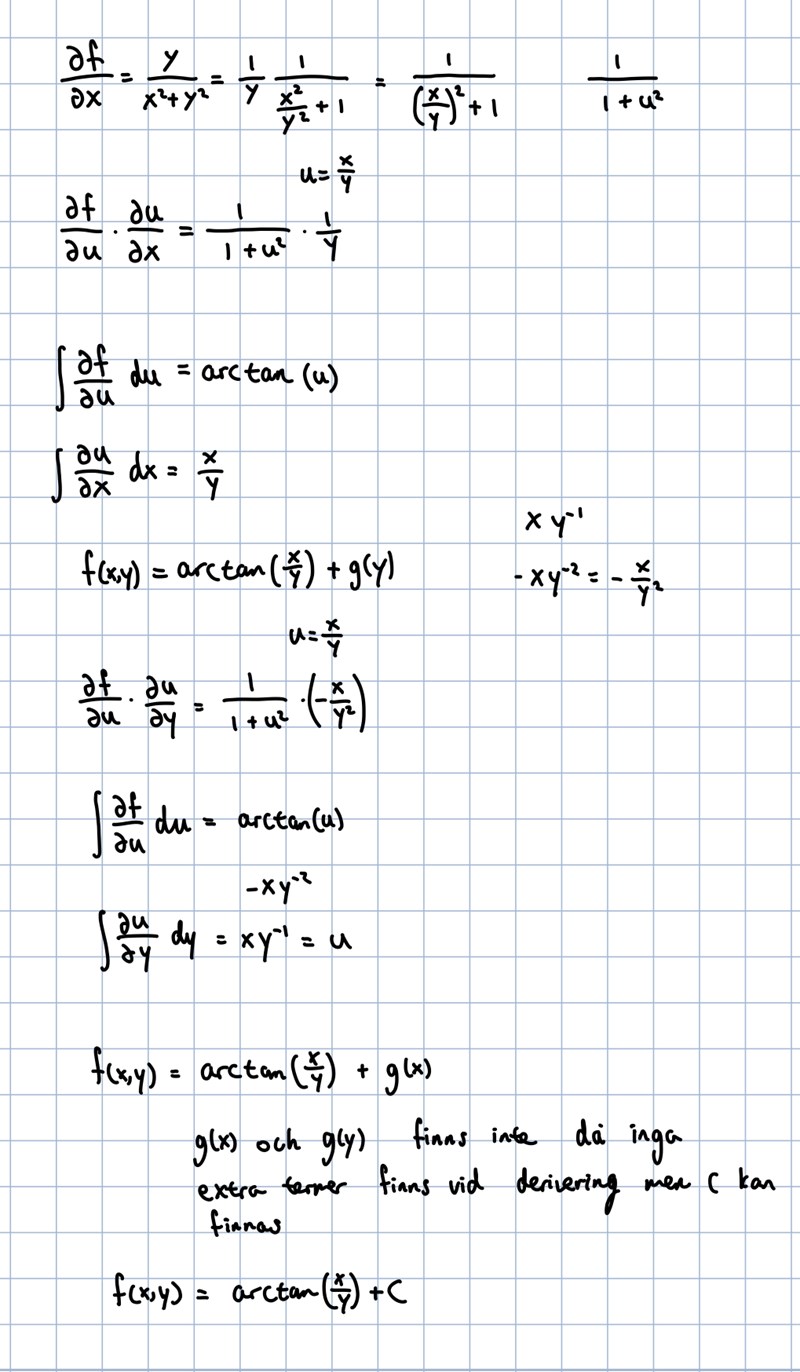 ∂f/∂x = y/(x²+y²) = 1/y · 1/(x²/y² + 1) = 1/((x/y)² + 1)    1/(1+u²)
u = x/y
∂f/∂u · ∂u/∂x = 1/(1+u²) · 1/y
∫ ∂f/∂u du = arctan(u)
∫ ∂u/∂x dx = x/y
x y⁻¹
f(x,y) = arctan(x/y) + g(y)    -xy⁻² = - x/y²
u = x/y
∂f/∂u · ∂u/∂y = 1/(1+u²) · (-x/y²)
∫ ∂f/∂u du = arctan(u)
-xy⁻²
∫ ∂u/∂y dy = xy⁻¹ = u
f(x,y) = arctan(x/y) + g(x)
g(x) och g(y) finns inte då inga
extra termer finns vid derivering men C kan
finnas
f(x,y) = arctan(x/y) + C